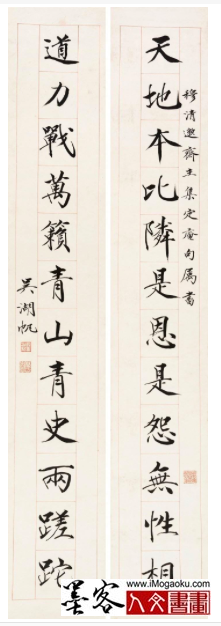 穆清邀齋主集定庵句屬書
天地本比隣是恩是怨無性相
道力戰萬籟青山青史兩蹉跎
吳湖帆
墨客
www.iMogaoku.com
人文書畫